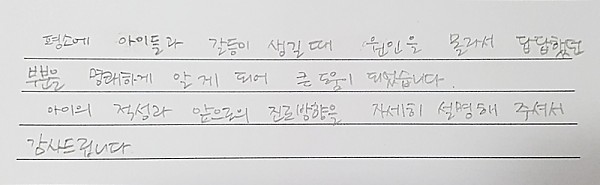 평소에 아이들과 갈등이 생길 때 원인을 몰라서 답답했던
부분을 명쾌하게 알 게 되어 큰 도움이 되었습니다.
아이의 적성과 앞으로의 진로방향을 자세히 설명해 주셔서
감사드립니다